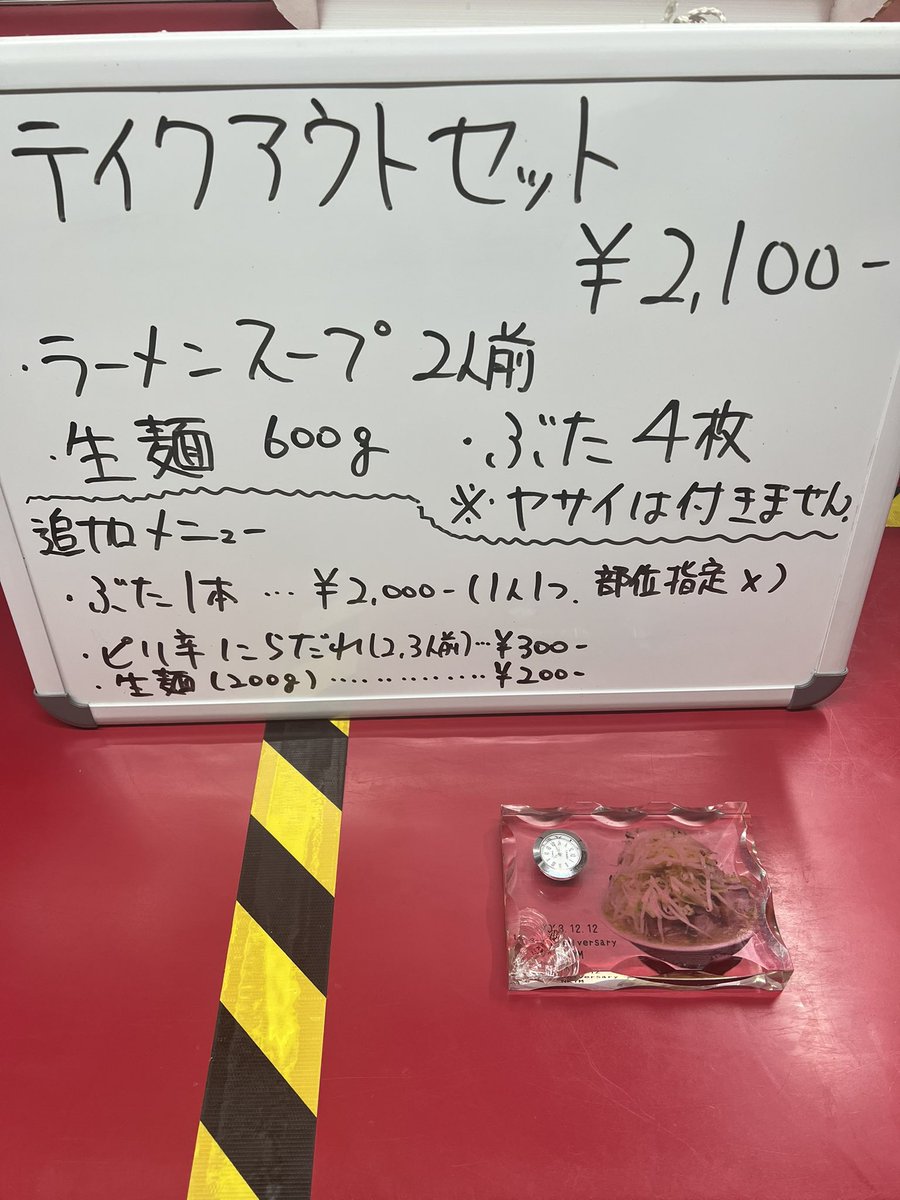 テイクアウトセット
¥2,100-
・ラーメンスープ 2人前
・生麺 600g ・ぶた 4枚
※ヤサイは付きません
追加メニュー
・ぶた1本 … ¥2,000-(1人1つ、部位指定×)
・ピリ辛にらだれ(2,3人前)…¥300-
・生麺(200g)……………¥200-
3.12.12